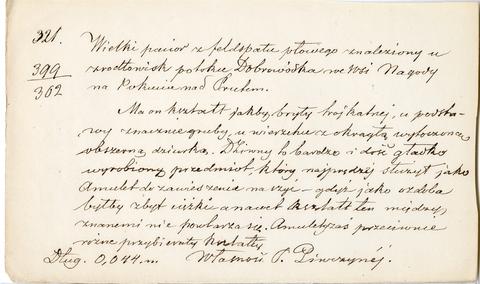 321.
399
362
Wielki paciorek z feldspatu płowego znaleziony u
źródłowisk potoku Dobrowódka we wsi Nagody
na Pokuciu nad Prutem.
Ma on kształt jakby bryły trójkątnej, u podsta-
wy znacznie grubej, u wierzchu z okrągłą wytoczoną
obszerną dziurką. Dziwny to bardzo i dość gładko
wyrobiony przedmiot, który najprędzej służył jako
Amulet do zawieszenia na szyi – gdyż jako ozdoba
byłby zbyt ciężki a nawet kształt ten między
znanemi nie powtarza się. Amulety zaś przeciwnie
różne przybierały kształty
Dług. 0,044. m Własność P.